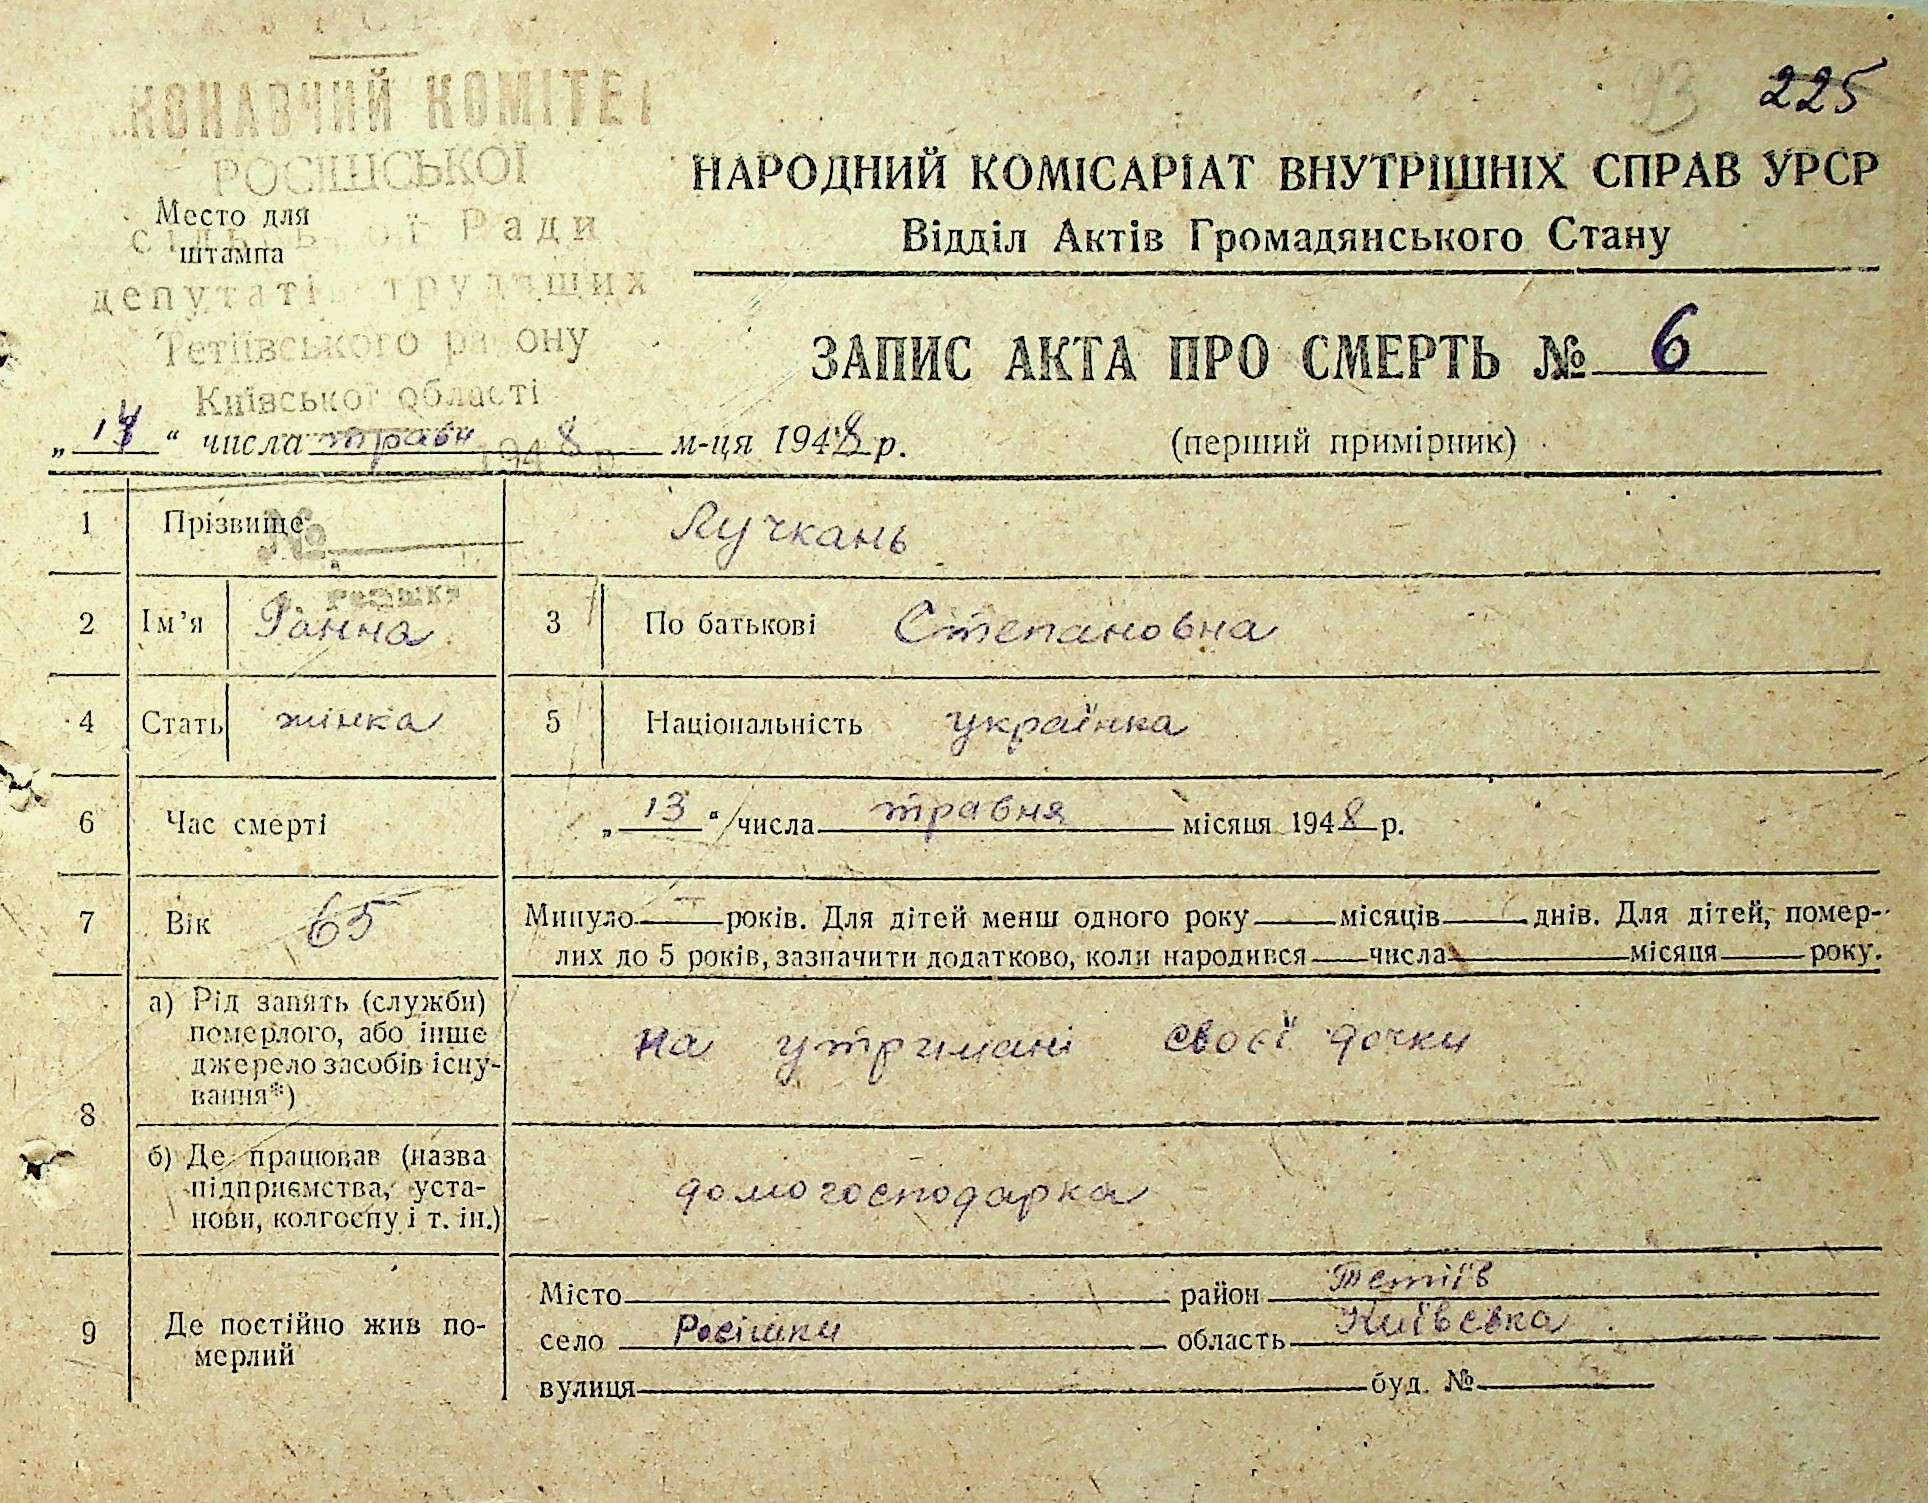 УРСР
ВИКОНАВЧИЙ КОМІТЕТ
РОСІШСЬКОЇ
сільської Ради
депутатів трудящих
Тетіївського району
Київської області
1948 р.
№
с. Росішки
Место для
штампа
93 225
НАРОДНИЙ КОМІСАРІАТ ВНУТРІШНІХ СПРАВ УРСР
Відділ Актів Громадянського Стану
ЗАПИС АКТА ПРО СМЕРТЬ № 6
„ 14 “ числа травн м-ця 1948 р. (перший примірник)
1 Прізвище Лучкань
2 Ім’я Ганна 3 По батькові Степановна
4 Стать жінка 5 Національність українка
6 Час смерті „ 13 “ числа травня місяця 1948 р.
7 Вік 65 Минуло — років. Для дітей менш одного року місяців днів. Для дітей, помер-
лих до 5 років, зазначити додатково, коли народився числа місяця року.
8 а) Рід занять (служби)
померлого, або інше
джерело засобів існу-
вання*)
на утримані своєї дочки
б) Де працював (назва
підприємства, уста-
нови, колгоспу і т. ін.)
домогосподарка
9 Де постійно жив по-
мерлий
Місто район Тетіїв
село Росішки область Київська
вулиця буд. №